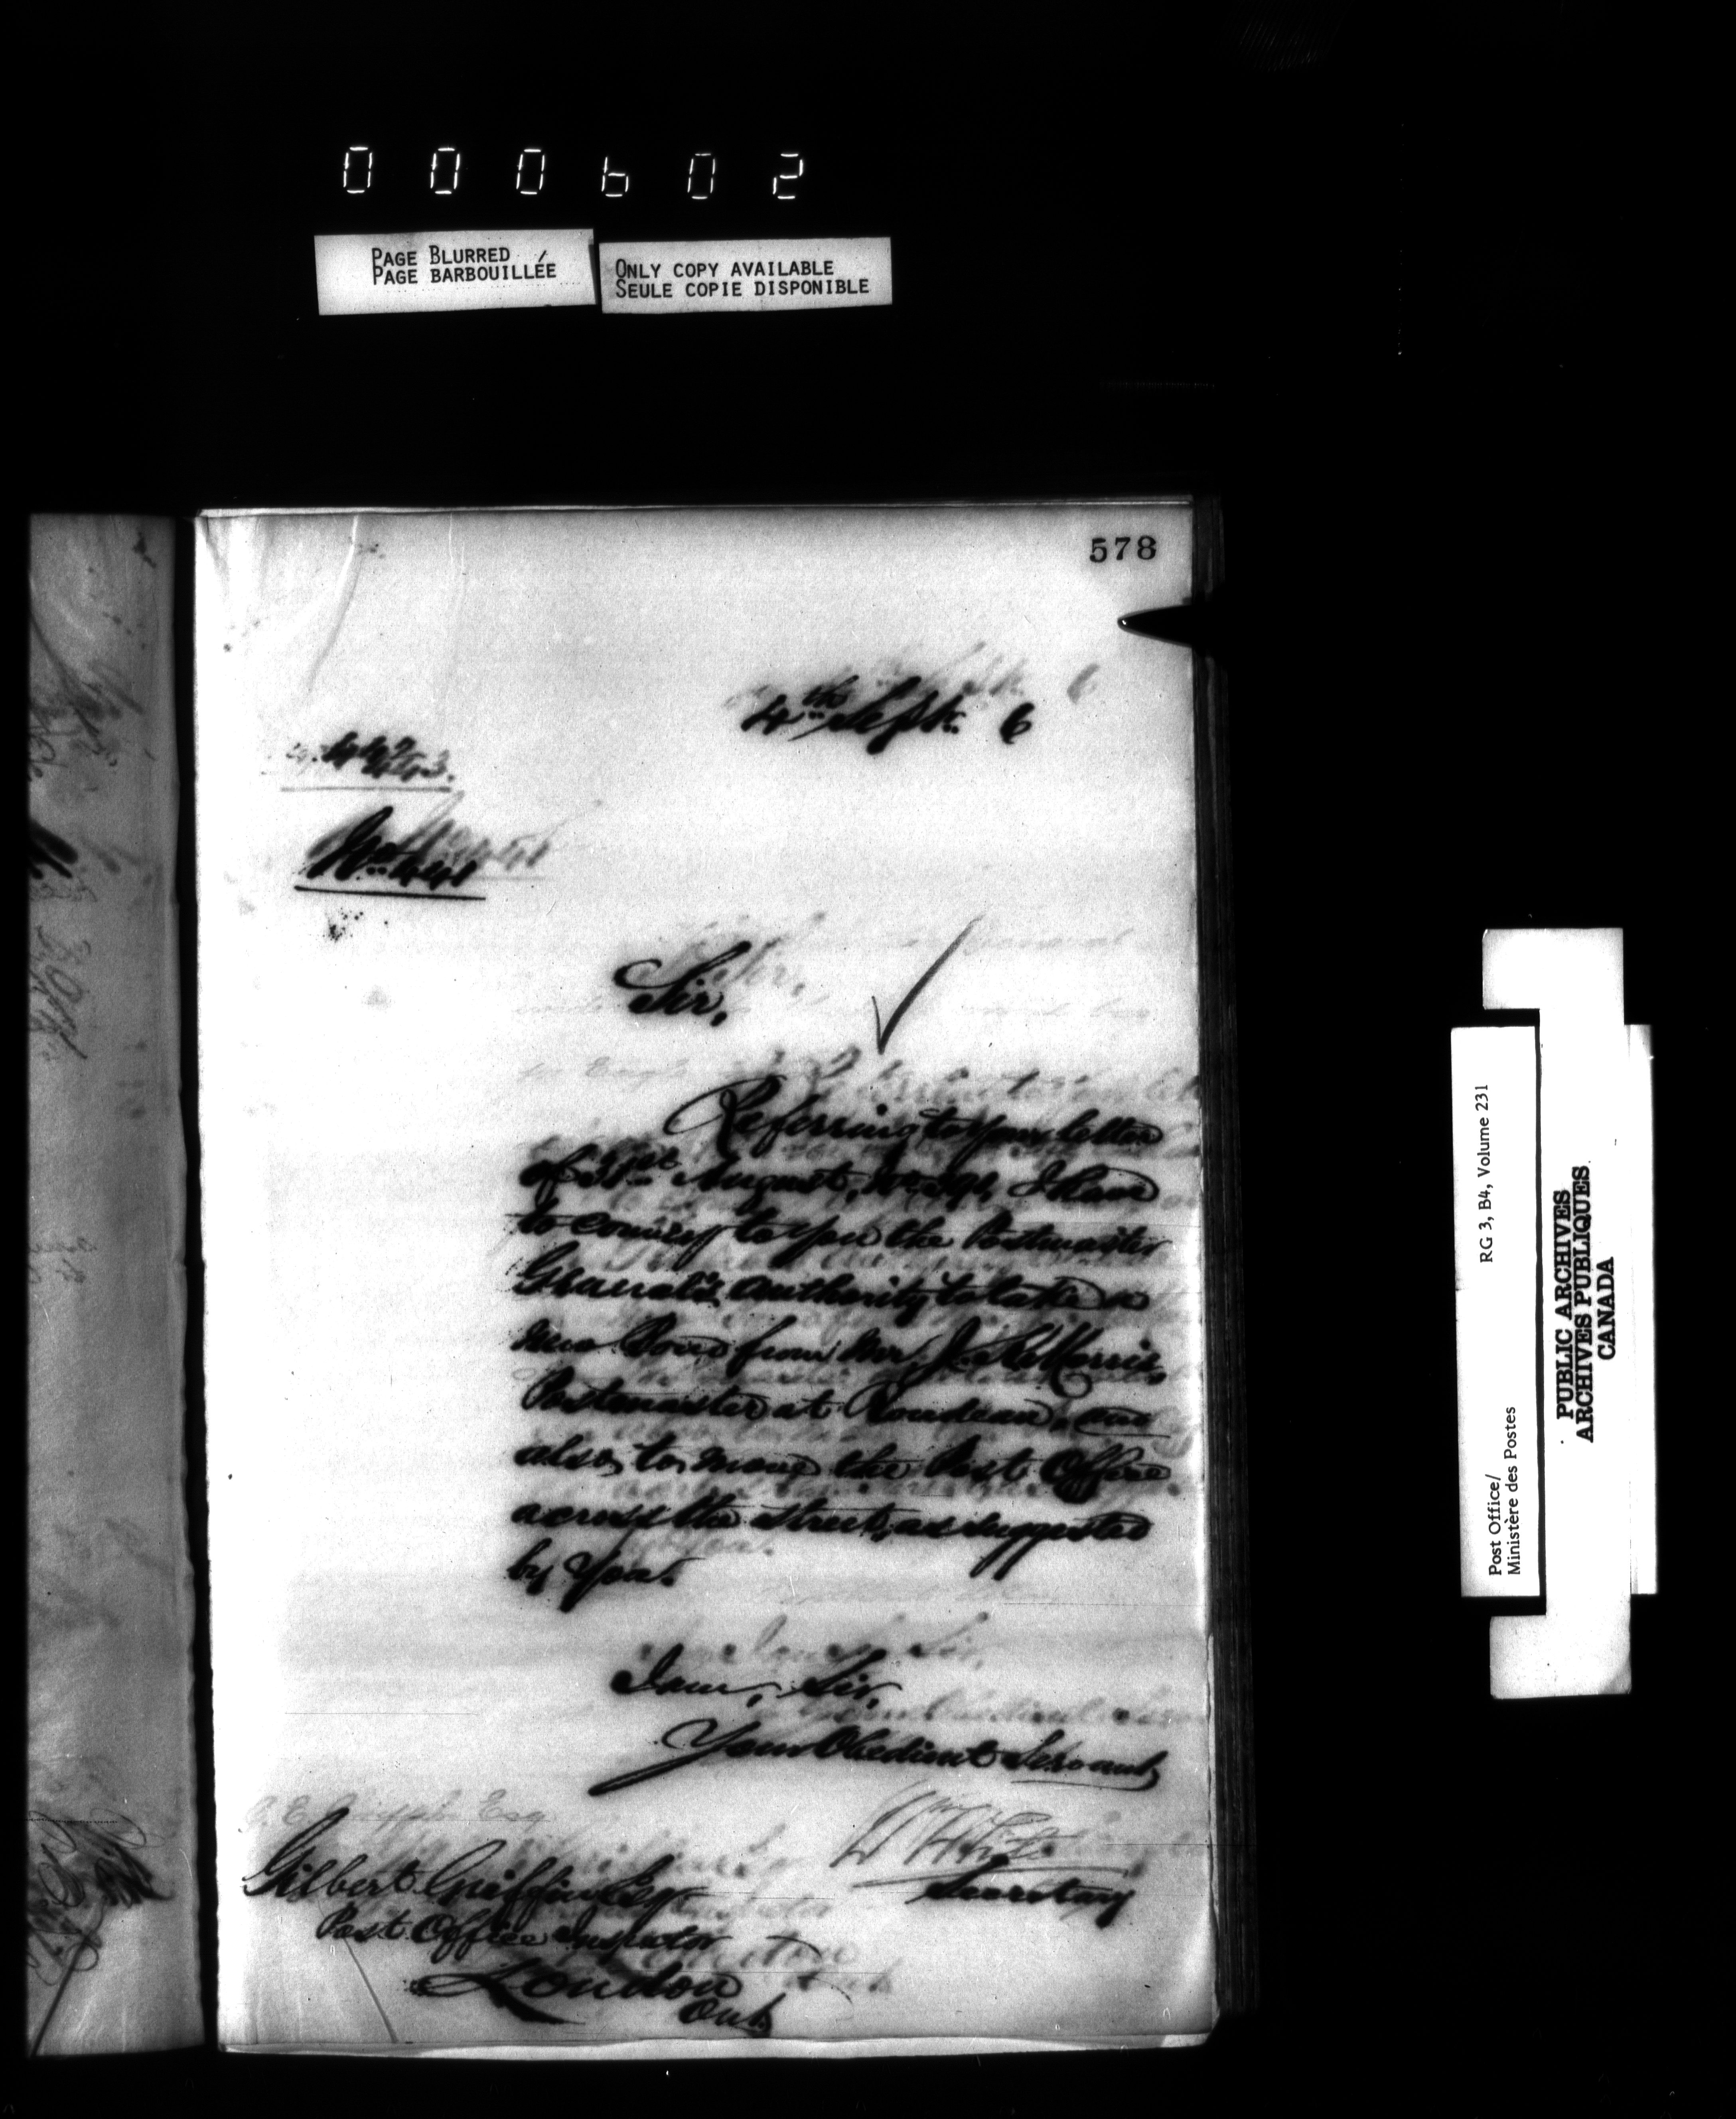 000602
PAGE BLURRED
PAGE BARBOUILLÉE
ONLY COPY AVAILABLE
SEULE COPIE DISPONIBLE
578
4th Sept. 6
No. 441
Sir,
Referring to your letter
of 31st August, I have
to convey to you the Postmaster
General's authority to take a
new Bond from Mr. J. K. Morris,
Postmaster at Rondeau, and
also, to move the Post Office
across the street, as suggested
by you.
I am, Sir,
Your Obedient Servant,
W White
Secretary
Gilbert Griffin Esq
Post Office Inspector
London
Ont
RG 3, B4, Volume 231
Post Office/
Ministère des Postes
PUBLIC ARCHIVES
ARCHIVES PUBLIQUES
CANADA